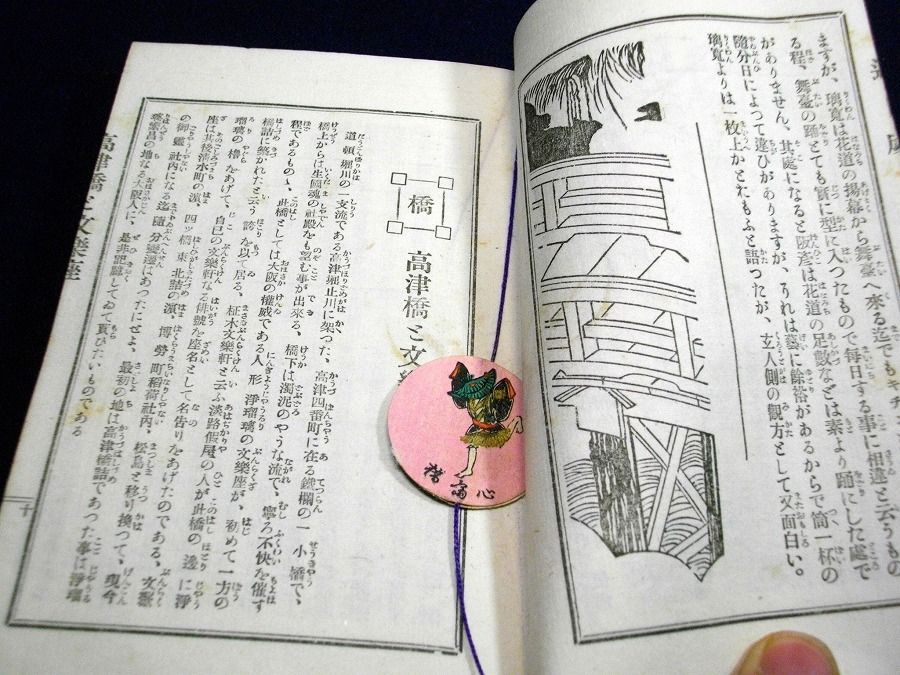 ますが、璃寛は花道の揚幕から舞臺へ來る迄でもキチ
る程、舞臺の踊とても實に型に入つたもので毎日する事に相違と云うもの
がありません、其處になると阪彦は花道の足數などは素より踊にした處で
隨分日によつて違ひがありますが、それは藝に餘裕があるからで筒一杯の
璃寛よりは一枚上かとおもふと語つたが、玄人側の觀方として又面白い。
橋
高津橋と文
道頓堀川の一支流である高津堀止川に架つた、高津四番町に在る鐵欄の一小橋で、
橋上からは生國魂の社殿をも望む事が出來る、橋下は濁泥のやうな流で、寧ろ不快を催す
程であるものゝ、此橋としては大阪の權威である人形淨瑠璃の文樂座が、初めて一方の
橋詰に築かれたと云う誇を以て居る、柾木文樂軒と云ふ淡路假屋の人が此橋の邊に淨
瑠璃の櫓をあげて、自己の文樂軒なる俳號を座名として名告りをあげたのである、文樂
座は其後淸水町の濵、四ッ橋東北詰の濵、博勞町稻荷社內、松島と移り換つて、現今
の御靈社內になる迄隨分變遷はあつたにせよ、最初の地は高津橋詰であつた事は淨瑠
璃の地なる大阪人に、是非記臆してゐて貰ひたいものである
高津橋と文樂座
十
心